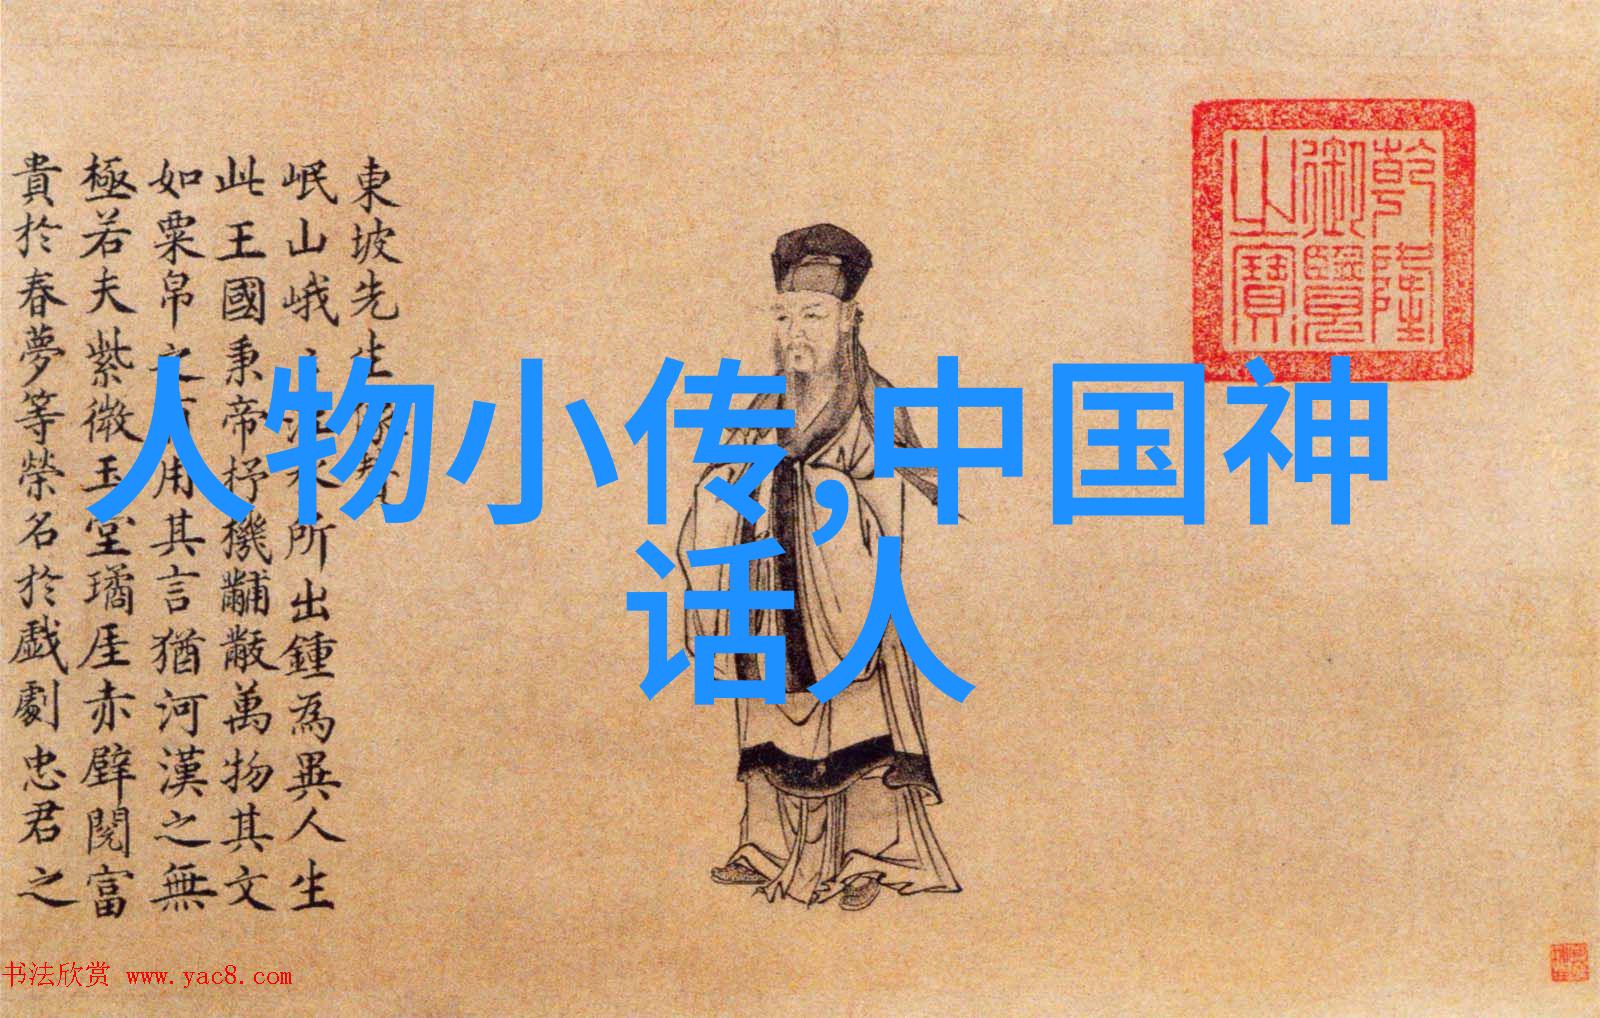 東坡先生像贊
岷山峨〻江水所出鍾為異人生
此王國秉帝杼機黼黻萬物其文
如粟帛之有用其言猶河漢之無
極若夫紫微玉堂璚厓赤壁閱富
貴於春夢等榮名於戲劇忠君之
乾隆
御覽
之寶
人物小传,中国神
话人
书法欣赏 www.yac8.com